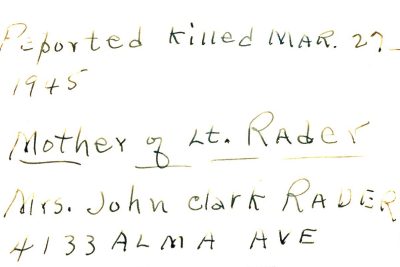 Reported Killed MAR. 27_
1945
Mother of Lt. Rader
Mrs. John Clark RADER
4133 ALMA AVE